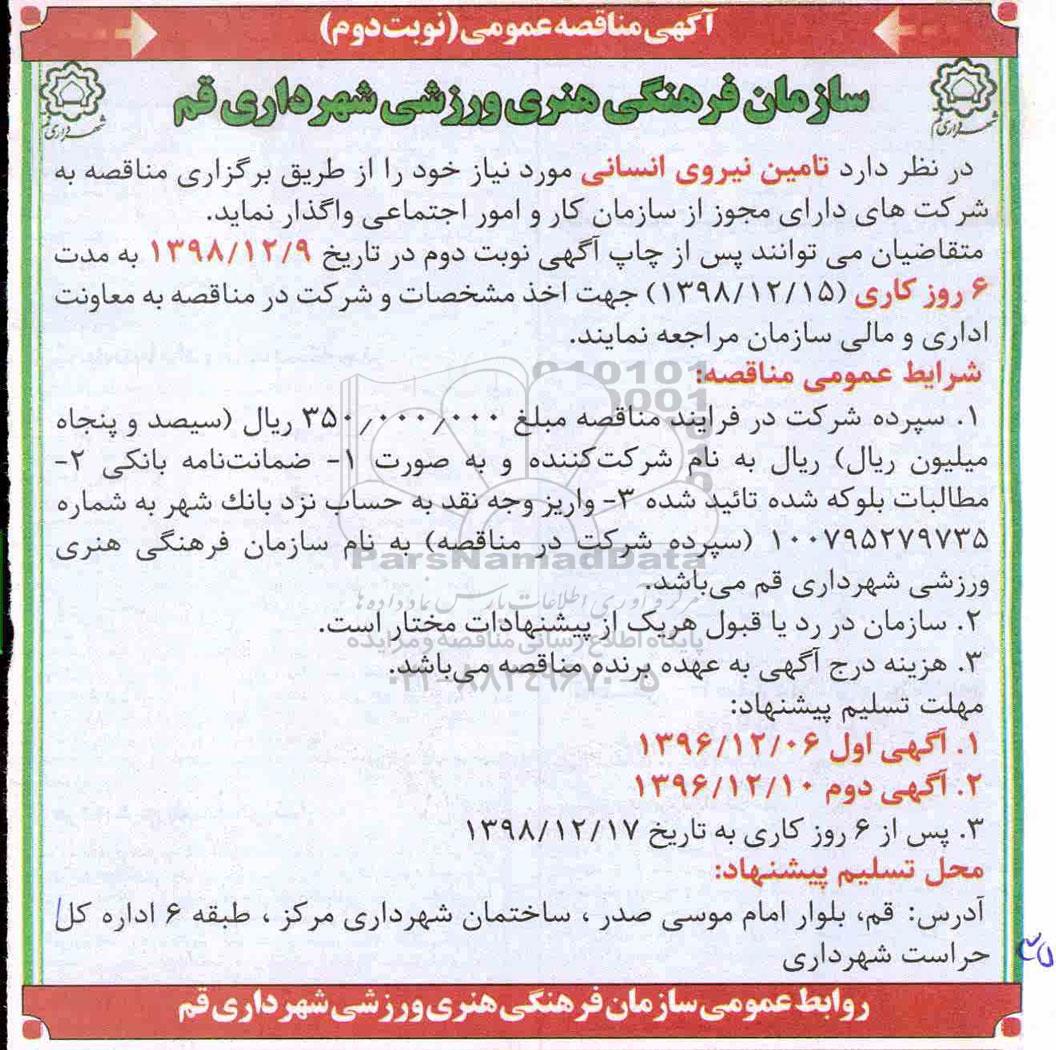 آگهی مناقصه عمومی (نوبت دوم)
سازمان فرهنگی هنری ورزشی شهرداری قم
شهرداری قم
شهرداری قم
در نظر دارد تامین نیروی انسانی مورد نیاز خود را از طریق برگزاری مناقصه به
شرکت های دارای مجوز از سازمان کار و امور اجتماعی واگذار نماید.
متقاضیان می توانند پس از چاپ آگهی نوبت دوم در تاریخ ۱۳۹۸/۱۲/۹ به مدت
۶ روز کاری (۱۳۹۸/۱۲/۱۵) جهت اخذ مشخصات و شرکت در مناقصه به معاونت
اداری و مالی سازمان مراجعه نمایند.
شرایط عمومی مناقصه:
۱. سپرده شرکت در فرایند مناقصه مبلغ ۳۵۰٫۰۰۰٫۰۰۰ ریال (سیصد و پنجاه
میلیون ریال) ریال به نام شرکت‌کننده و به صورت ۱- ضمانت‌نامه بانکی ۲-
مطالبات بلوکه شده تائید شده ۳- واریز وجه نقد به حساب نزد بانك شهر به شماره
۱۰۰۷۹۵۲۷۹۷۳۵ (سپرده شرکت در مناقصه) به نام سازمان فرهنگی هنری
ورزشی شهرداری قم می‌باشد.
۲. سازمان در رد یا قبول هریک از پیشنهادات مختار است.
۳. هزینه درج آگهی به عهده برنده مناقصه می‌باشد.
مهلت تسلیم پیشنهاد:
۱. آگهی اول ۱۳۹۶/۱۲/۰۶
۲. آگهی دوم ۱۳۹۶/۱۲/۱۰
۳. پس از ۶ روز کاری به تاریخ ۱۳۹۸/۱۲/۱۷
محل تسلیم پیشنهاد:
آدرس: قم، بلوار امام موسی صدر ، ساختمان شهرداری مرکز ، طبقه ۶ اداره کل
حراست شهرداری
روابط عمومی سازمان فرهنگی هنری ورزشی شهرداری قم
ParsNamadData
مرکز فرآوری اطلاعات پارس نماد داده‌ها
پایگاه اطلاع رسانی مناقصه و مزایده